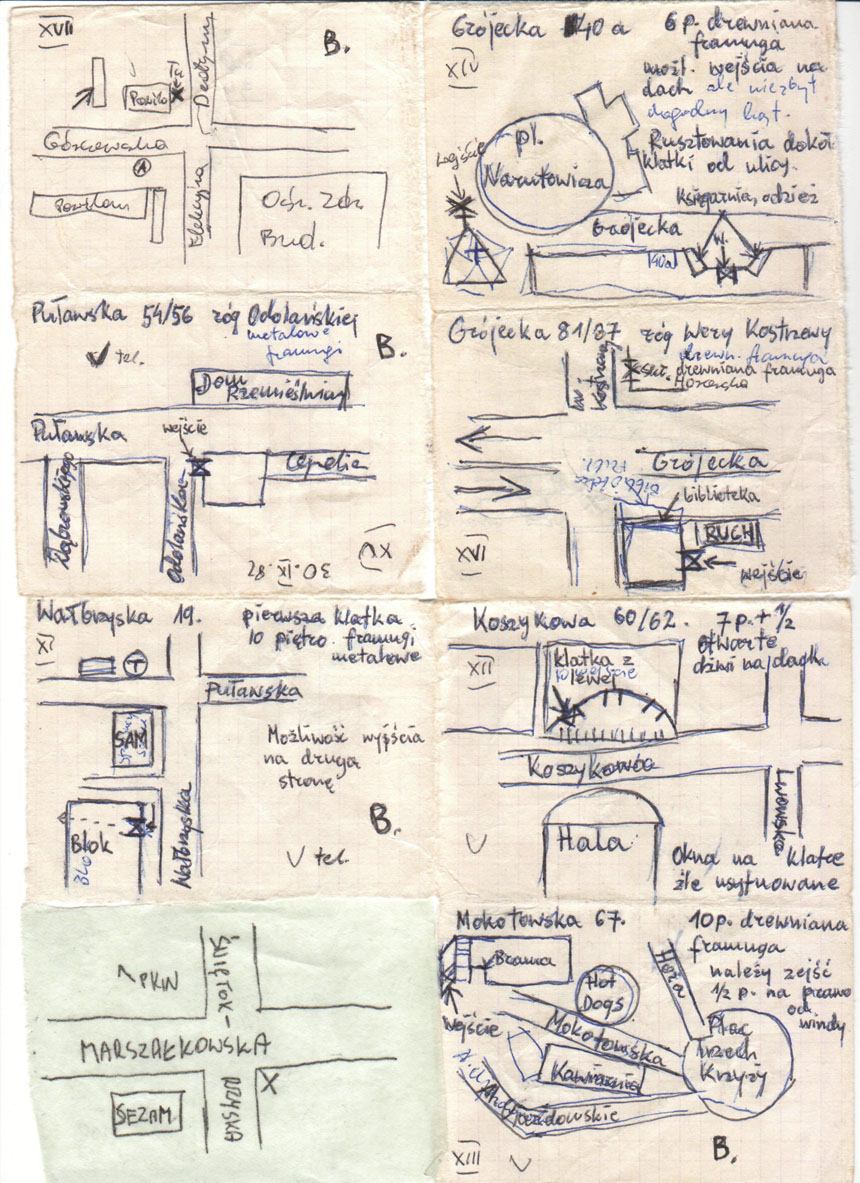 XVII
B.
Górczewska
A
Elekcyjna
Ośr. Zdr.
Bud.
Grójecka 40 a
6 p. drewniana
framuga
XIV
możl. wejścia na
dach ale niezbyt
dogodny kąt.
Rusztowania dokoł
klatki od ulicy.
pl.
Narutowicza
Księgarnia, odzież
Grójecka
40a
w.
Puławska 54/56 róg Odolańskiej
metalowe
framugi
B.
√ tel.
Dom
Rzemieślnicy
Puławska
wejście
Cepelia
Dąbrowskiego
Odolańska
30.IX.82
XV
Grójecka 81/87 róg Wery Kostrzewy
drewn. framuga
drewniana framuga
Grójecka
biblioteka
RUCH
XVI
wejście
Wałbrzyska 19.
pierwsza klatka
10 piętro framugi
metalowe
XI
T
Puławska
SAM
Możliwość wyjścia
na druga
stronę
Wałbrzyska
Blok
B.
√ tel.
Koszykowa 60/62. 7 p. + 1/2
otwarte
dzwi na dachu
XII
klatka z
lewej
Koszykowa
Lwowska
Hala
Okna na klatce
źle usytuowane
√
PKiN
ŚWIĘTOK-
RZYSKA
MARSZAŁKOWSKA
X
SEZAM
Mokotowska 67.
10 p. drewniana
framuga
należy zejść
1/2 p. na prawo
od
windy
Brama
Hot
Dogs
Hoża
wejście
Mokotowska
Plac
Trzech
Krzyży
Kawiarnia
XIII
√
B.